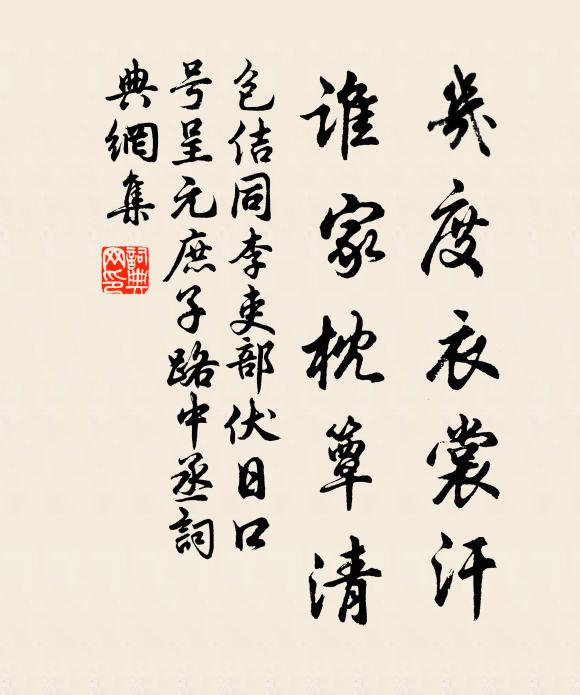 幾度衣裳汗
誰家枕簟清
包佶同李吏部伏日口
号呈元庶子路中丞詞
典網集
詞典
网印